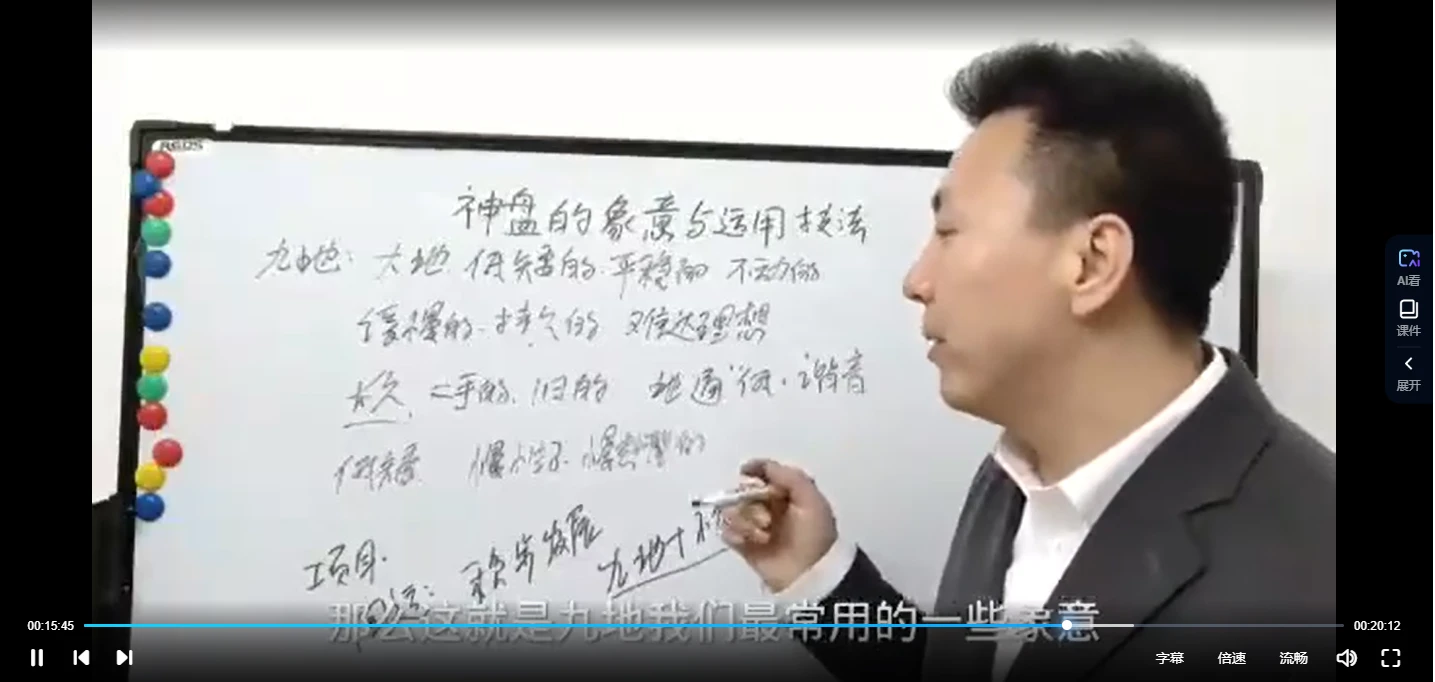 ASDS
神盘的象意与运用技法
九地：大地 低矮的、平稳的 不动的
缓慢的、持久的 难达理想
长久、二手的、旧的 地通“低”、谐音
低矮 慢性子、慢
项目
稳步发展
九地十
那么这就是九地我们最常用的一些象意
AI看
课件
展开
00:15:45
00:20:12
字幕 倍速 流畅